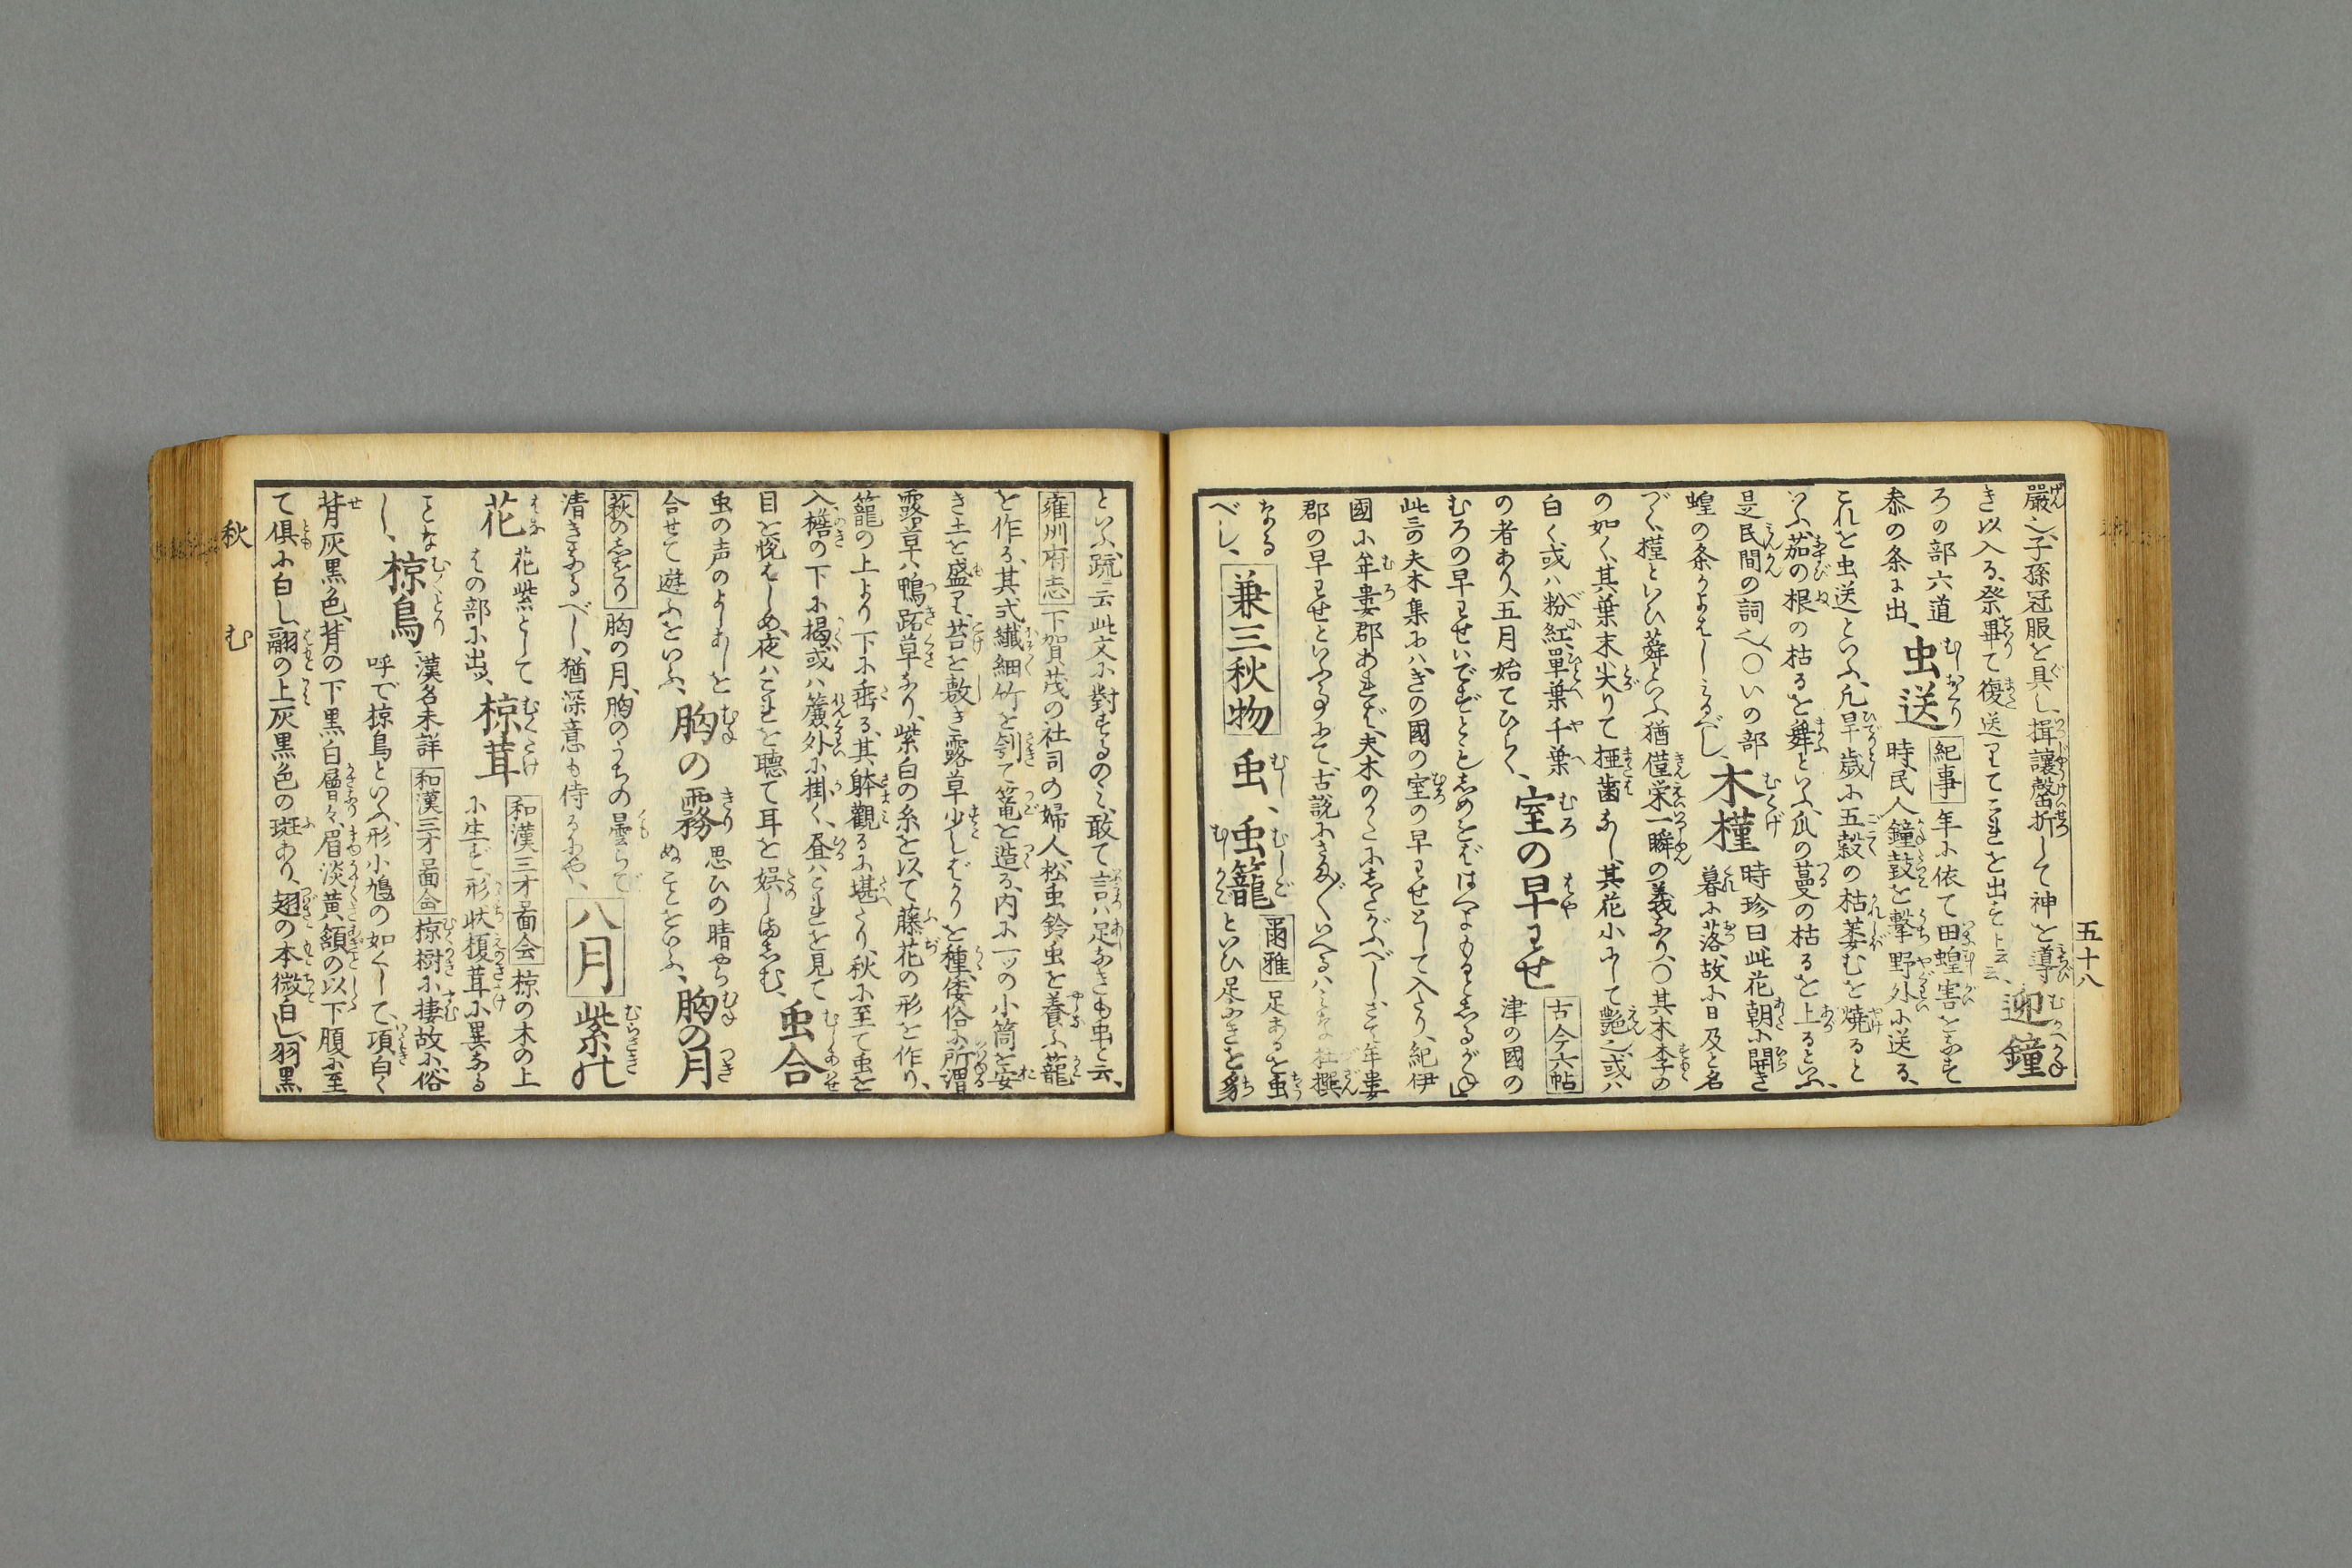 五十八
嚴之、子孫冠服を具し、揖讓磬折して神を導
き以入る、祭畢て復送りてこれを出すト云云、迎鐘
ろの部六道
参の条に出、虫送 紀事 年に依て田蝗害をなす
時、民人鐘鼓を撃、野外に送る、
これを虫送といふ、凡旱歳に五穀の枯萎むを焼ると
いふ、茄の根の枯るを舞といふ、瓜の蔓の枯るを上るといふ、
是民間の詞也、〇いの部
蝗の条
木槿 時珍曰此花朝に開き
暮に落、故に日及と名
づく、槿といひ蕣といふ、猶僅栄一瞬の義なり、〇其木李の
の如く、其葉末尖りて椏齒なし、其花小にして艶也、或ハ
白く、或ハ粉紅、單葉千葉
の者あり、五月始てひらく、室の早わせ 古今六帖
津の國の
むろの早わせ
此哥夫木集にハ、きの國の室の早わせとして入たり、紀伊
國に牟婁郡あれば、夫木のかたにしたがふべし、さて牟婁
郡の早わせといふ事にて、古説にさま〴〵いへるハ、みな杜撰
なる
べし、兼三秋物 虫、虫籠 爾雅 足あるを虫
といひ、足なきを豸
といふ、疏云此文に對するのミ、敢て言ハ足なきも虫と云、
雍州府志 下賀茂の社司の婦人、松虫鈴虫を養ふ籠
を作る、其式繊細竹を刳て篭を造る、内に一ツの小筒を安
き、土を盛り、苔を敷き、露草少しばかりを種、倭俗に所謂
露草ハ鴨跖草なり、紫白の糸を以て藤花の形を作り、
籠の上より下に垂る、其躰觀るに堪たり、秋に至て虫を
入、檐の下に掲、或ハ簾外に掛く、昼ハこれを見て
目を悦ばしめ、夜ハこれを聴て耳を娯しましむ、虫合
虫の声のよしあしを
合せて遊ふをいふ、胸の霧 思ひの晴やら
ぬことをいふ、胸の月
萩のしをり 胸の月、胸のうちの曇らで
清きなるべし、猶深意も侍るにや、八月 紫の
花 花紫として
はの部に出、椋茸 和漢三才啚会 椋の木の上
に生ず、形状榎茸に異なる
ことな
し、椋鳥 漢名未詳 和漢三才啚会 椋樹に棲故に俗
呼で椋鳥といふ、形小鳩の如くして、項白く
背灰黒色、背の下黒白層々、眉淡黄、頷の以下腹に至
て倶に白し、翮の上灰黒色の斑あり、翅の本微白し、羽黒
秋
む